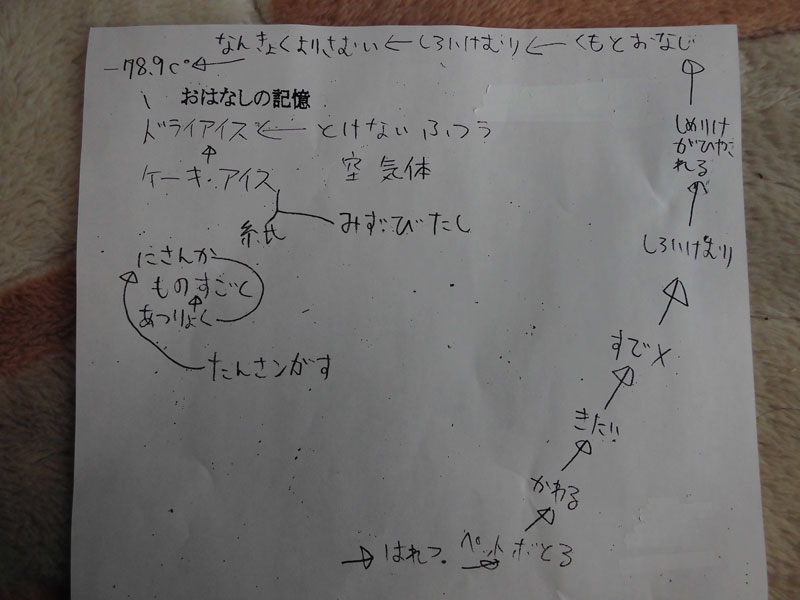 なんきょくよりさむい ← しろいけむり ← くもとおなじ
−78.9c° ←
おはなしの記憶
ドライアイス ← とけない ふつう
しめりけ
がひやさ
れる
↑
ケーキ・アイス
空 気体
紙
みずびたし
しろいけむり
にさんか
ものすごく
↑
あつりょく
たんさンがす
すで×
きた!!
かわる
→ はれつ. ペットボとる